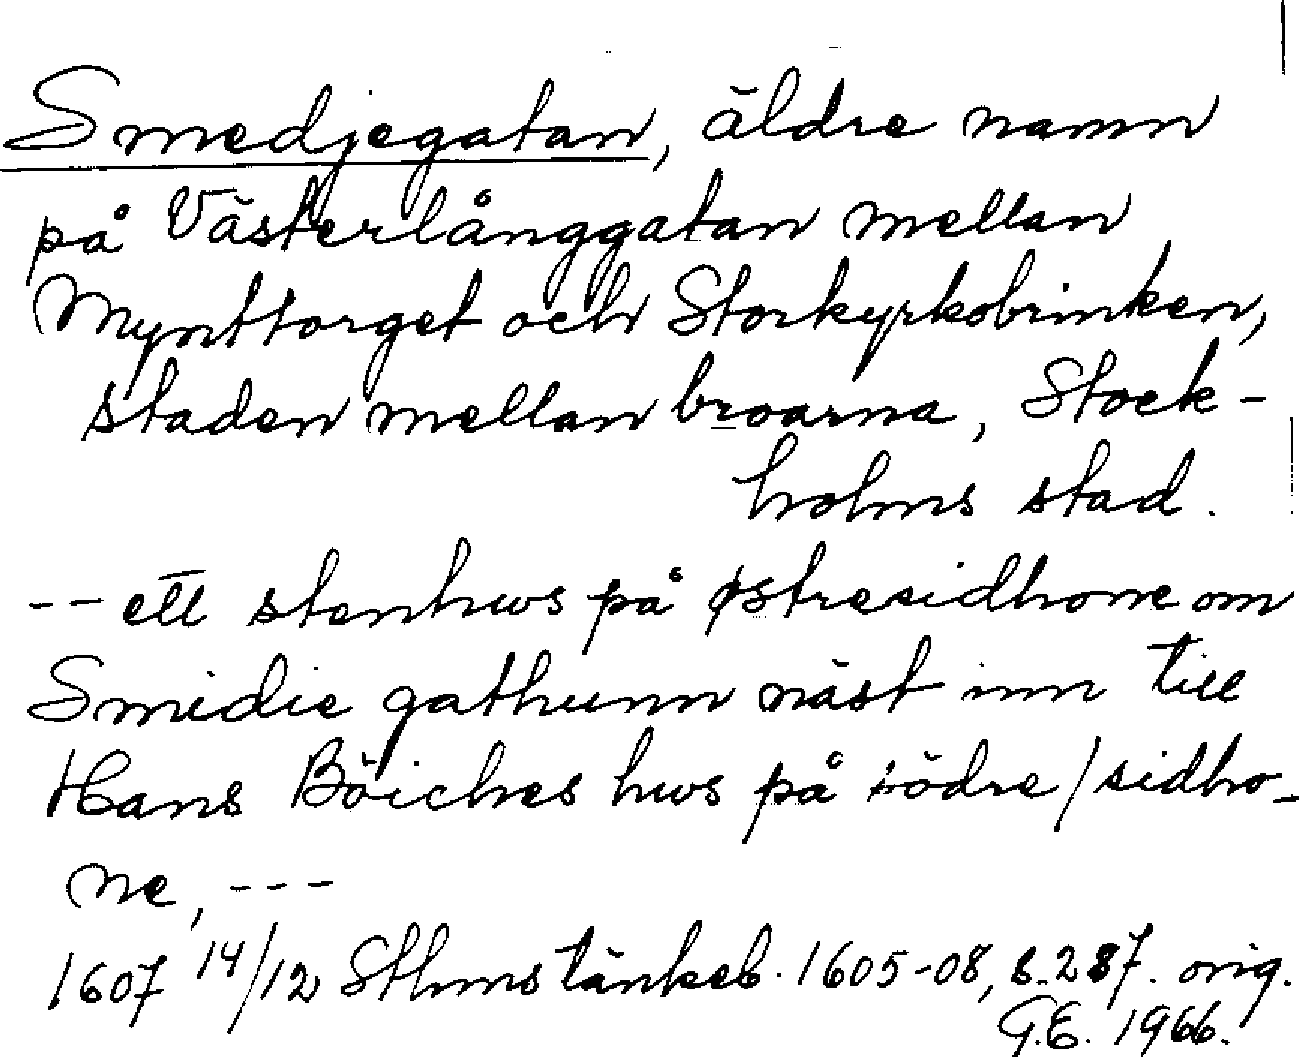 Smedjegatan, äldre namn
på Västerlånggatan mellan
Mynttorget och Storkyrkobrinken,
staden mellan broarna, Stock-
holms stad.
-- ett stenhws på østresidhonne om
Smidie gathunn näst inn till
Hans Böiches hws på södre/sidho-
ne, ---
1607 14/12 Sthms tänkeb. 1605-08, s. 287. orig.
G.E. 1966.